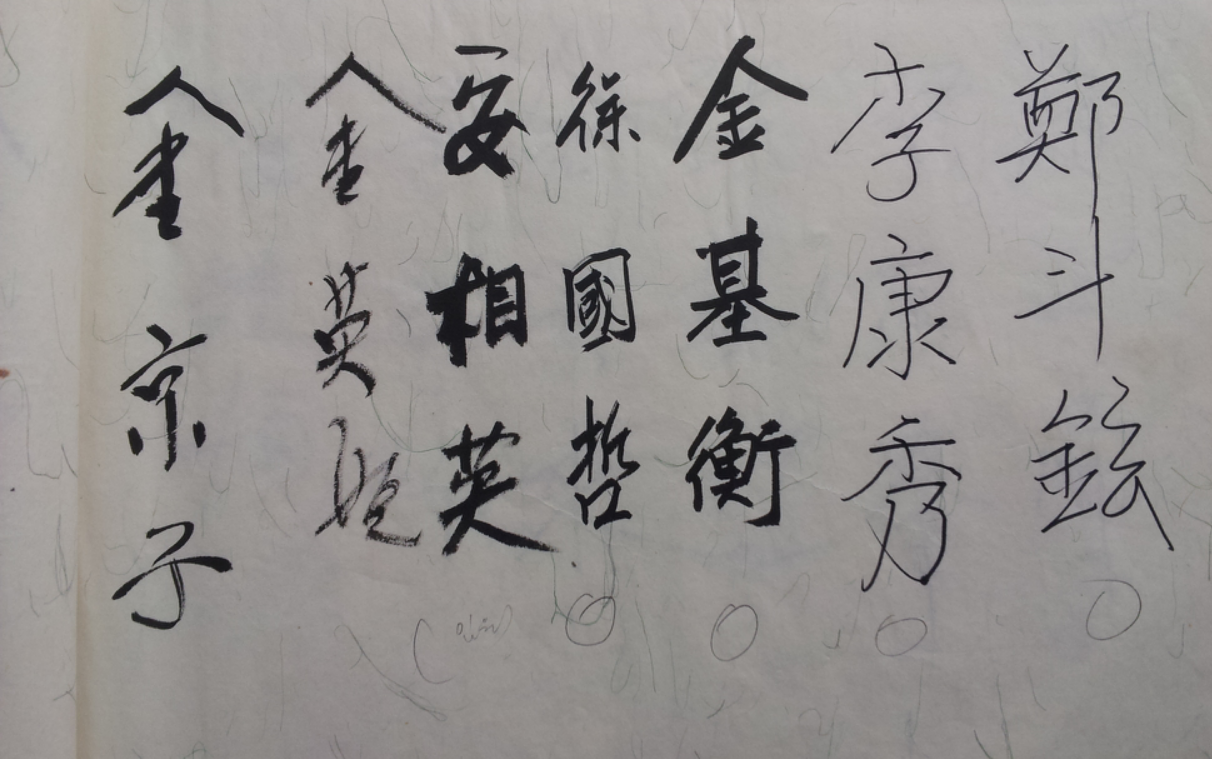 鄭斗鉉
李康秀
金基衡
徐國哲
安相英
金英姬
金京子